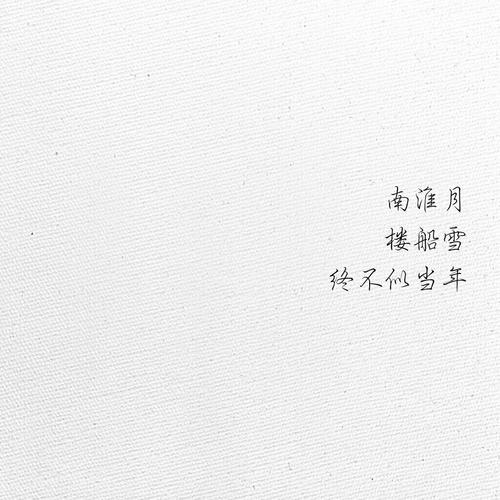 南淮月
楼船雪
终不似当年